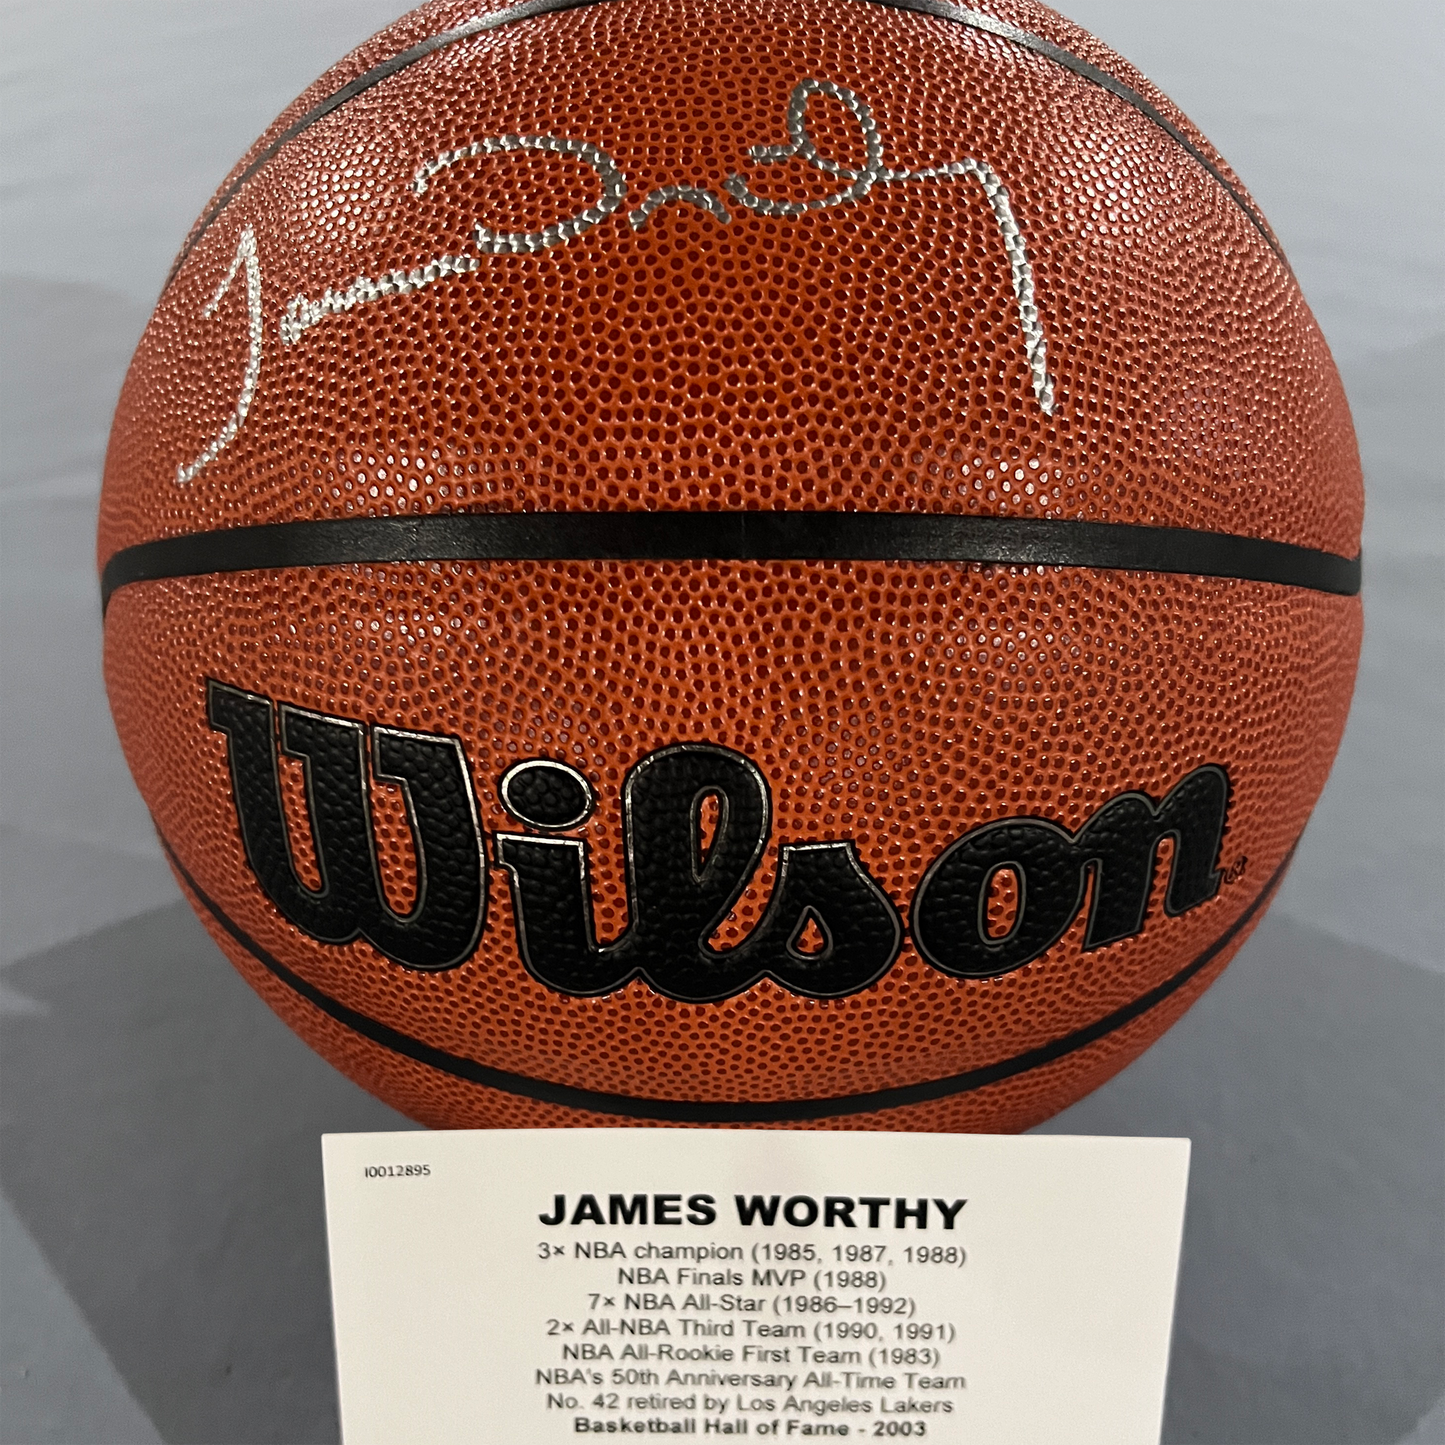 James Worthy
Wilson®
I0012895
JAMES WORTHY
3× NBA champion (1985, 1987, 1988)
NBA Finals MVP (1988)
7× NBA All-Star (1986–1992)
2× All-NBA Third Team (1990, 1991)
NBA All-Rookie First Team (1983)
NBA's 50th Anniversary All-Time Team
No. 42 retired by Los Angeles Lakers
Basketball Hall of Fame - 2003